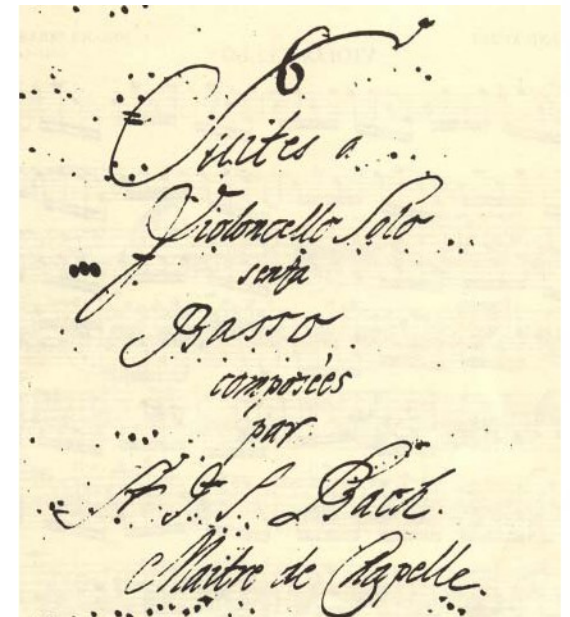 6
Suites a
Violoncello Solo
senza
Basso
composées
par
J. S. Bach.
Maitre de Chapelle.